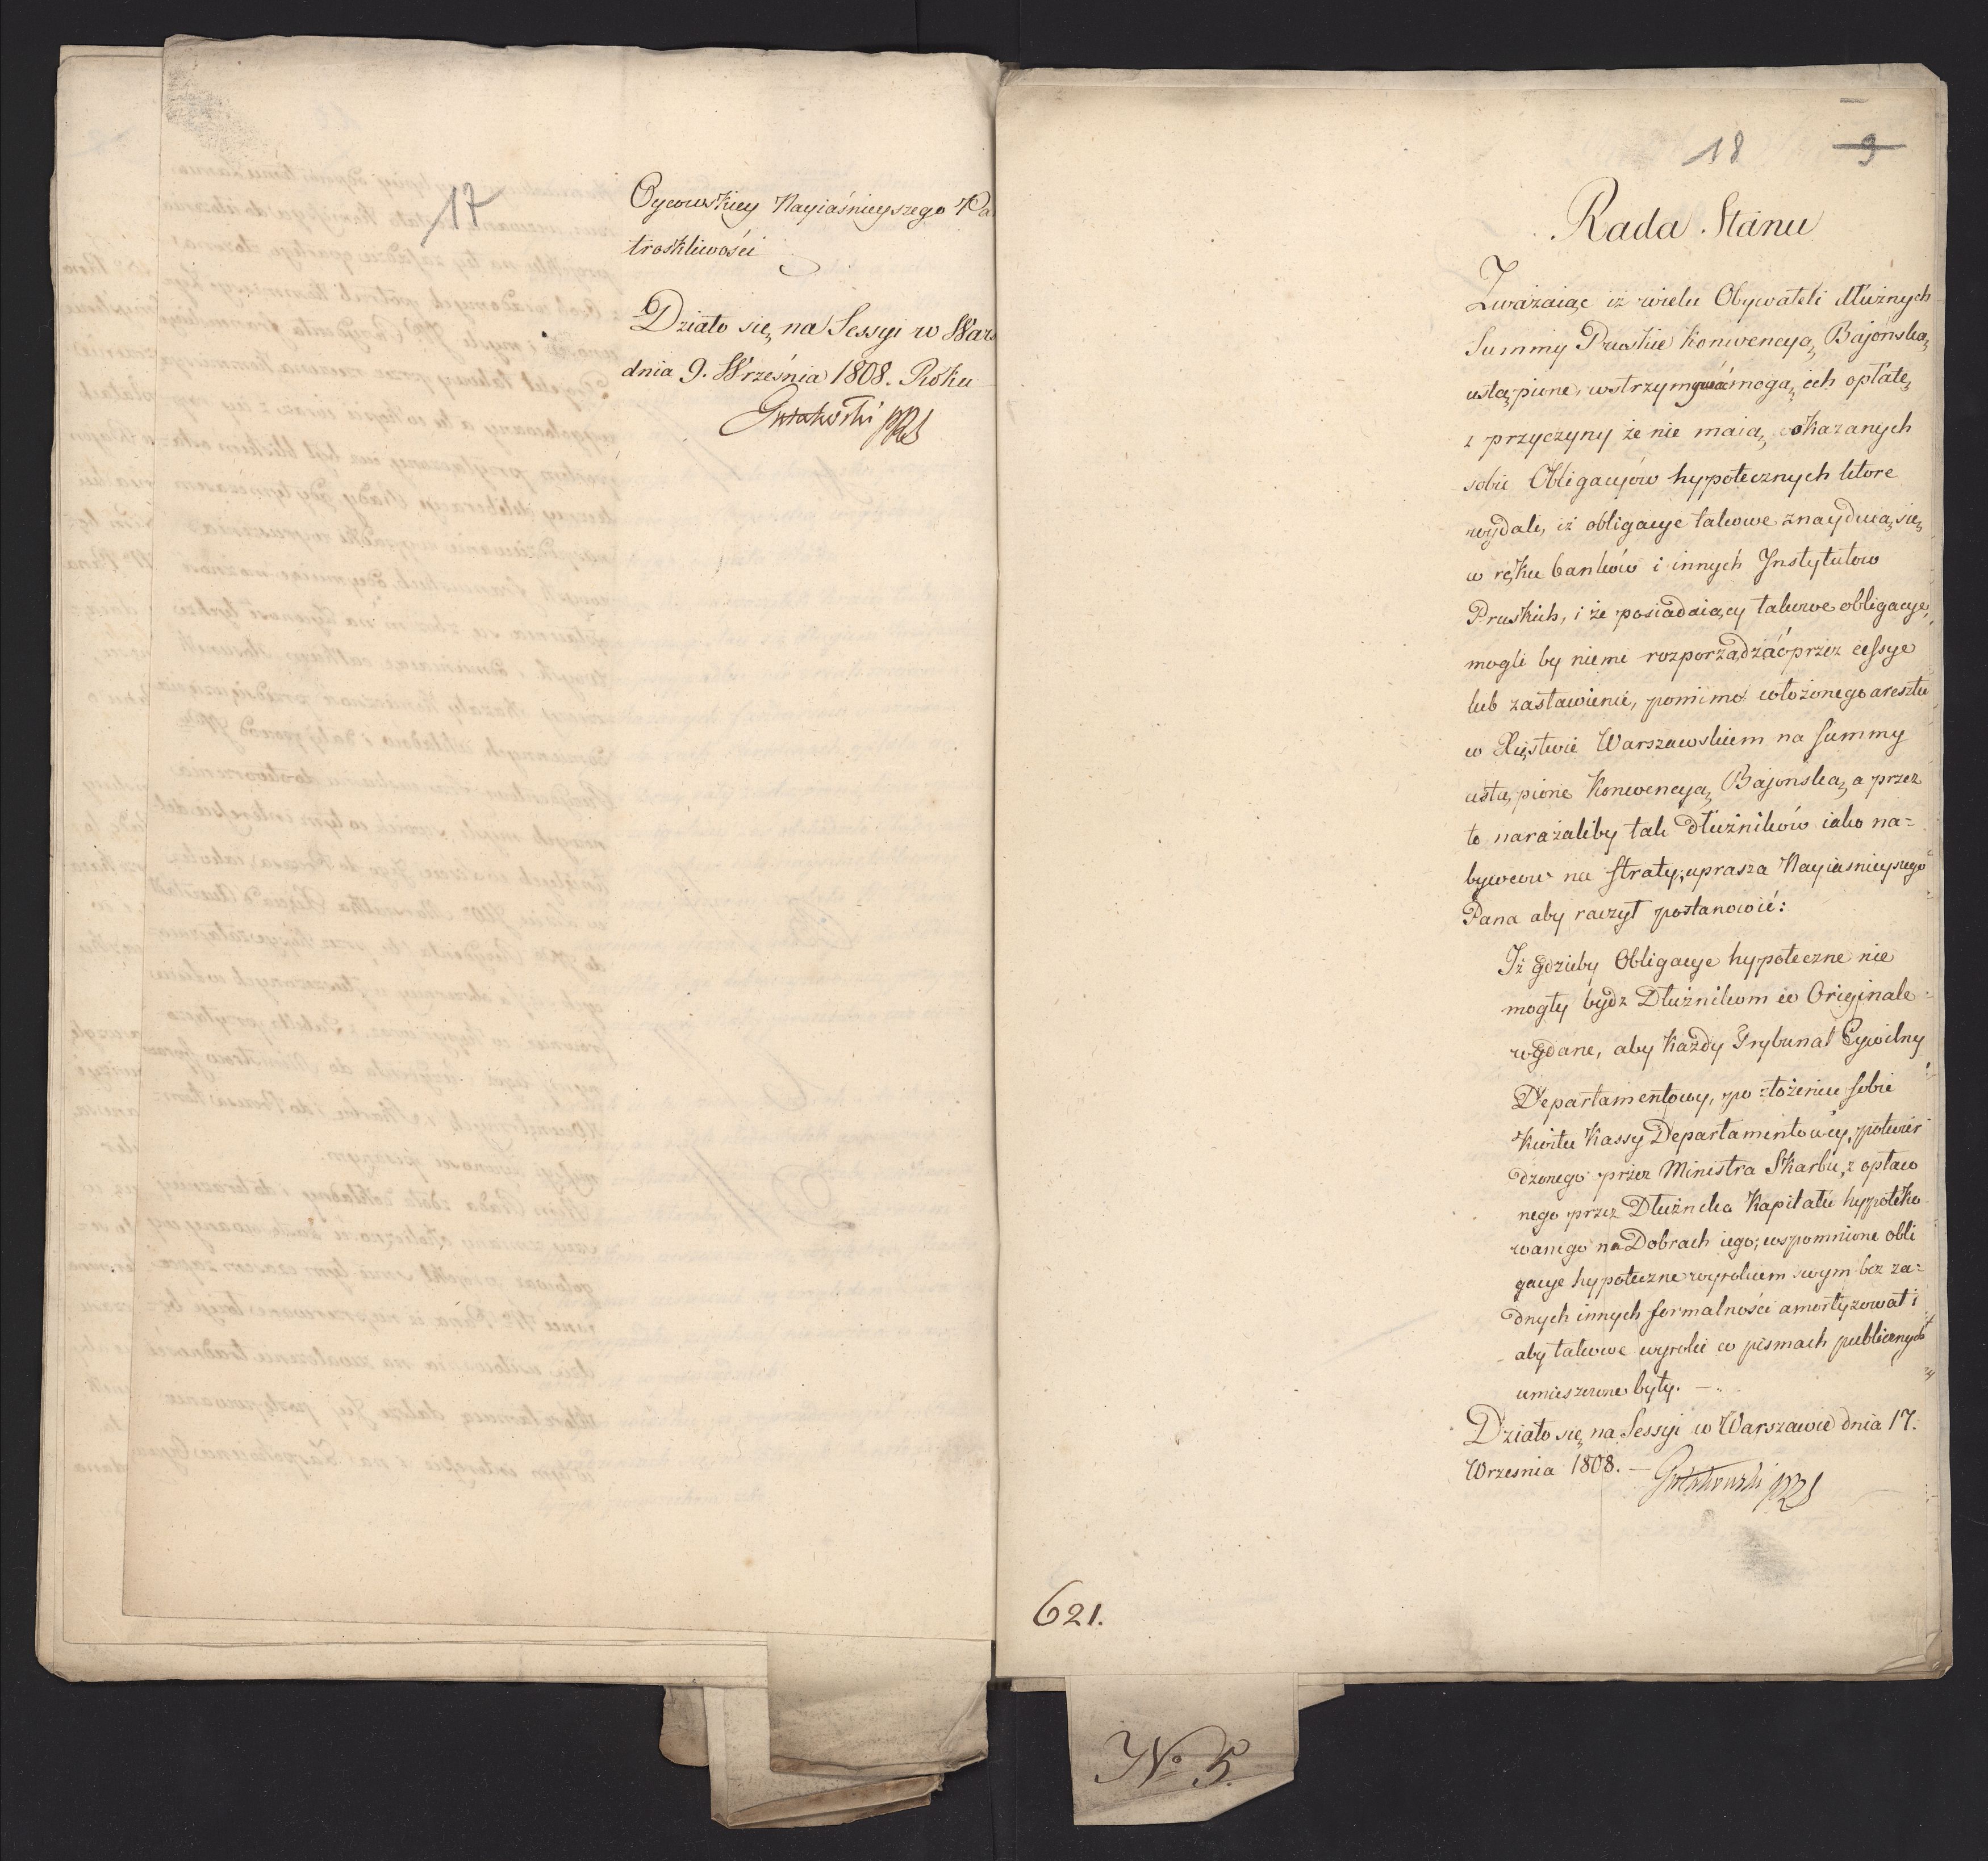 17
Oycowskiey Nayiaśnieyszego Pa
troskliwości
Działo się na Sessyi w Wars
dnia 9. Września 1808. Roku
Gutakowski PRS
18
9
Rada Stanu
Zważaiąc iż wielu Obywateli dłużnych
Summy Pruskie Konwencyą Bajońską
ustąpione, wstrzymywać mogą ich opłatę
z przyczyny że nie maią okazanych
sobie Obligacyów hypotecznych które
wydali, iż obligacye takowe znayduią się
w ręku banków i innych Instytutow
Pruskich, i że posiadaiący takowe obligacye,
mogli by niemi rozporządzać przez cessye
lub zastawienie, pomimo włożonego aresztu
w Xięstwie Warszawskiem na summy
ustąpione Konwencyą Bajońską, a przez
to narażaliby tak Dłużników iako na=
bywcow na straty, uprasza Nayiasnieyszego
Pana aby raczył postanowić:
Iż gdzieby Obligacye hypoteczne nie
mogły bydz Dłużnikom w Originale
wydane, aby Każdy Trybunał Cywilny
Departamentowy, po złożeniu sobie
Kwitu Kassy Departamentowey, potwier
dzonego przez Ministra Skarbu, z opłaco
nego przez Dłużnika Kapitału hypoteko
wanego na Dobrach iego; wspomnione obli
gacye hypoteczne wyrokiem swym bez ża=
dnych innych formalności amortyzował i
aby takowe wyroki w pismach publicznych
umieszczone były. —
Działo się na Sessyi w Warszawie dnia 17.
Września 1808. — Gutakowski PRS
621.
No 5.